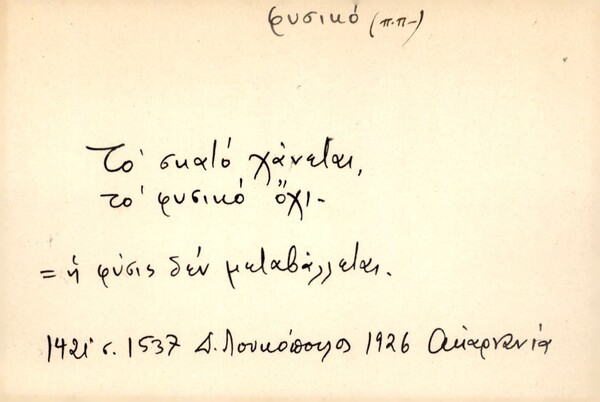 φυσικό (π.π-)
Τό σκατό χάνεται,
τό φυσικό ὄχι-
= ἡ φύσις δέν μεταβάλλεται.
142 σ. 1537 Δ. Λουκόπουλος 1926 Ἀκαρνανία